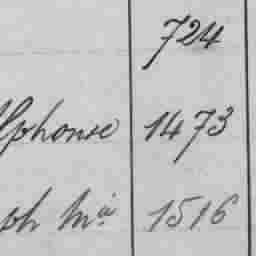 724
lphonse 1473
ph Mia 1516